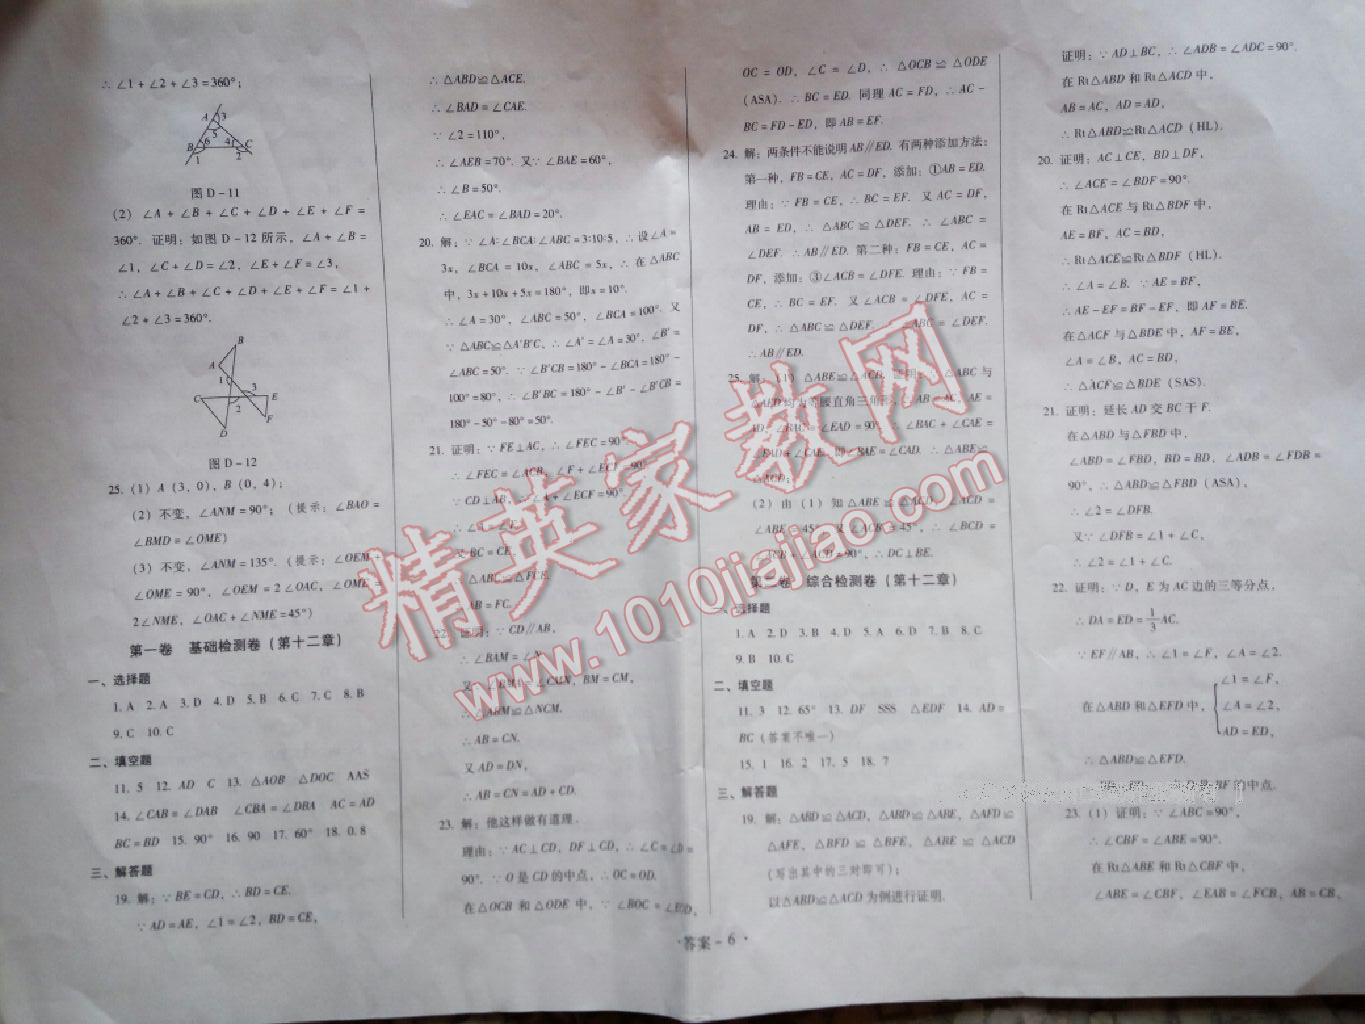 ∴ ∠1 + ∠2 + ∠3 = 360°；
A 3
5
B 6 4 C
1 2
图 D - 11
(2) ∠A + ∠B + ∠C + ∠D + ∠E + ∠F =
360°. 证明：如图 D - 12 所示，∠A + ∠B =
∠1，∠C + ∠D = ∠2，∠E + ∠F = ∠3，
∴ ∠A + ∠B + ∠C + ∠D + ∠E + ∠F = ∠1 +
∠2 + ∠3 = 360°.
B
A
1 3
C E
2
F
D
图 D - 12
25. (1) A (3, 0)，B (0, 4)；
(2) 不变，∠ANM = 90°；(提示：∠BAO =
∠BMD = ∠OME)
(3) 不变，∠ANM = 135°. (提示：∠OEM +
∠OME = 90°，∠OEM = 2∠OAC，∠OME =
2∠NME，∠OAC + ∠NME = 45°)
第一卷 基础检测卷（第十二章）
一、选择题
1. A 2. A 3. D 4. D 5. B 6. C 7. C 8. B
9. C 10. C
二、填空题
11. 5 12. AD C 13. △AOB △DOC AAS
14. ∠CAB = ∠DAB ∠CBA = ∠DBA AC = AD
BC = BD 15. 90° 16. 90 17. 60° 18. 0.8
三、解答题
19. 解：∵ BE = CD，∴ BD = CE.
∵ AD = AE，∠1 = ∠2，BD = CE，
∴ △ABD≌△ACE.
∴ ∠BAD = ∠CAE.
∵ ∠2 = 110°，
∴ ∠AEB = 70°. 又∵ ∠BAE = 60°，
∴ ∠B = 50°.
∴ ∠EAC = ∠BAD = 20°.
20. 解：∵ ∠A∶∠BCA∶∠ABC = 3∶10∶5，∴ 设∠A =
3x，∠BCA = 10x，∠ABC = 5x，∴ 在△ABC
中，3x + 10x + 5x = 180°，即x = 10°.
∴ ∠A = 30°，∠ABC = 50°，∠BCA = 100°. 又
∵ △ABC≌△A'B'C，∴ ∠A' = ∠A = 30°，∠B' =
∠ABC = 50°. ∵ ∠B'CB = 180° - ∠BCA = 180° -
100° = 80°，∴ ∠B'BC = 180° - ∠B' - ∠B'CB =
180° - 50° - 80° = 50°.
21. 证明：∵ FE⊥AC，∴ ∠FEC = 90°.
∴ ∠FEC = ∠ACB，∠F + ∠ECF = 90°.
∵ CD⊥AB，∴ ∠A + ∠ECF = 90°.
∴ ∠A = ∠F.
又 BC = CE，
∴ △ABC≌△FCE.
∴ AB = FC.
22. 证明：∵ CD∥AB，
∴ ∠BAM = ∠N.
又∵ ∠BMA = ∠CMN，BM = CM，
∴ △ABM≌△NCM.
∴ AB = CN.
又 AD = DN，
∴ AB = CN = AD + CD.
23. 解：他这样做有道理.
理由：∵ AC⊥CD，DF⊥CD，∴ ∠C = ∠D =
90°. ∵ O 是 CD 的中点，∴ OC = OD.
在△OCB 和△ODE 中，∵ ∠BOC = ∠EOD，
OC = OD，∠C = ∠D，∴ △OCB≌△ODE
(ASA). ∴ BC = ED. 同理 AC = FD，∴ AC -
BC = FD - ED，即 AB = EF.
24. 解：两条件不能说明 AB∥ED. 有两种添加方法：
第一种，FB = CE，AC = DF，添加：①AB = ED.
理由：∵ FB = CE，∴ BC = EF. 又 AC = DF，
AB = ED，∴ △ABC≌△DEF. ∴ ∠ABC =
∠DEF. ∴ AB∥ED. 第二种：FB = CE，AC =
DF，添加：③∠ACB = ∠DFE. 理由：∵ FB =
CE，∴ BC = EF. 又 ∠ACB = ∠DFE，AC =
DF，∴ △ABC≌△DEF. ∴ ∠ABC = ∠DEF.
∴ AB∥ED.
25. 解：(1) △ABE≌△ACD. 证明：∵ △ABC 与
△AED 均为等腰直角三角形，∴ AB = AC，AE =
AD，∠BAC = ∠EAD = 90°. ∴ ∠BAC + ∠CAE =
∠EAD + ∠CAE. 即∠BAE = ∠CAD. ∴ △ABE≌
△ACD；
(2) 由 (1) 知△ABE≌△ACD，∠ACD =
∠ABE = 45°. 又∠ACB = 45°，∴ ∠BCD =
∠ACB + ∠ACD = 90°，∴ DC⊥BE.
第二卷 综合检测卷（第十二章）
一、选择题
1. A 2. D 3. B 4. D 5. A 6. D 7. B 8. C
9. B 10. C
二、填空题
11. 3 12. 65° 13. DF SSS △EDF 14. AD =
BC (答案不唯一)
15. 1 16. 2 17. 5 18. 7
三、解答题
19. 解：△ABD≌△ACD，△ABD≌△ABE，△AFD≌
△AFE，△BFD≌△BFE，△ABE≌△ACD
(写出其中的三对即可)；
以△ABD≌△ACD 为例进行证明.
证明：∵ AD⊥BC，∴ ∠ADB = ∠ADC = 90°.
在 Rt△ABD 和 Rt△ACD 中，
AB = AC，AD = AD，
∴ Rt△ABD≌Rt△ACD (HL).
20. 证明：AC⊥CE，BD⊥DF，
∴ ∠ACE = ∠BDF = 90°.
在 Rt△ACE 与 Rt△BDF 中，
AE = BF，AC = BD，
∴ Rt△ACE≌Rt△BDF (HL).
∴ ∠A = ∠B. ∵ AE = BF，
∴ AE - EF = BF - EF，即 AF = BE.
在△ACF 与△BDE 中，AF = BE，
∠A = ∠B，AC = BD，
∴ △ACF≌△BDE (SAS).
21. 证明：延长 AD 交 BC 于 F.
在△ABD 与△FBD 中，
∠ABD = ∠FBD，BD = BD，∠ADB = ∠FDB =
90°，∴ △ABD≌△FBD (ASA)，
∴ ∠2 = ∠DFB.
又∵ ∠DFB = ∠1 + ∠C，
∴ ∠2 = ∠1 + ∠C.
22. 证明：∵ D，E 为 AC 边的三等分点，
∴ DA = ED = 1/3 AC.
∵ EF∥AB，∴ ∠1 = ∠F，∠A = ∠2.
在△ABD 和△EFD 中，{∠1 = ∠F，
∠A = ∠2，
AD = ED，
∴ △ABD≌△EFD.
BF 的中点.
23. (1) 证明：∵ ∠ABC = 90°，
∴ ∠CBF = ∠ABE = 90°.
在 Rt△ABE 和 Rt△CBF 中，
∠ABE = ∠CBF，∠EAB = ∠FCB，AB = CB，
·答案 - 6·
精英家教网
www.1010jiajiao.com